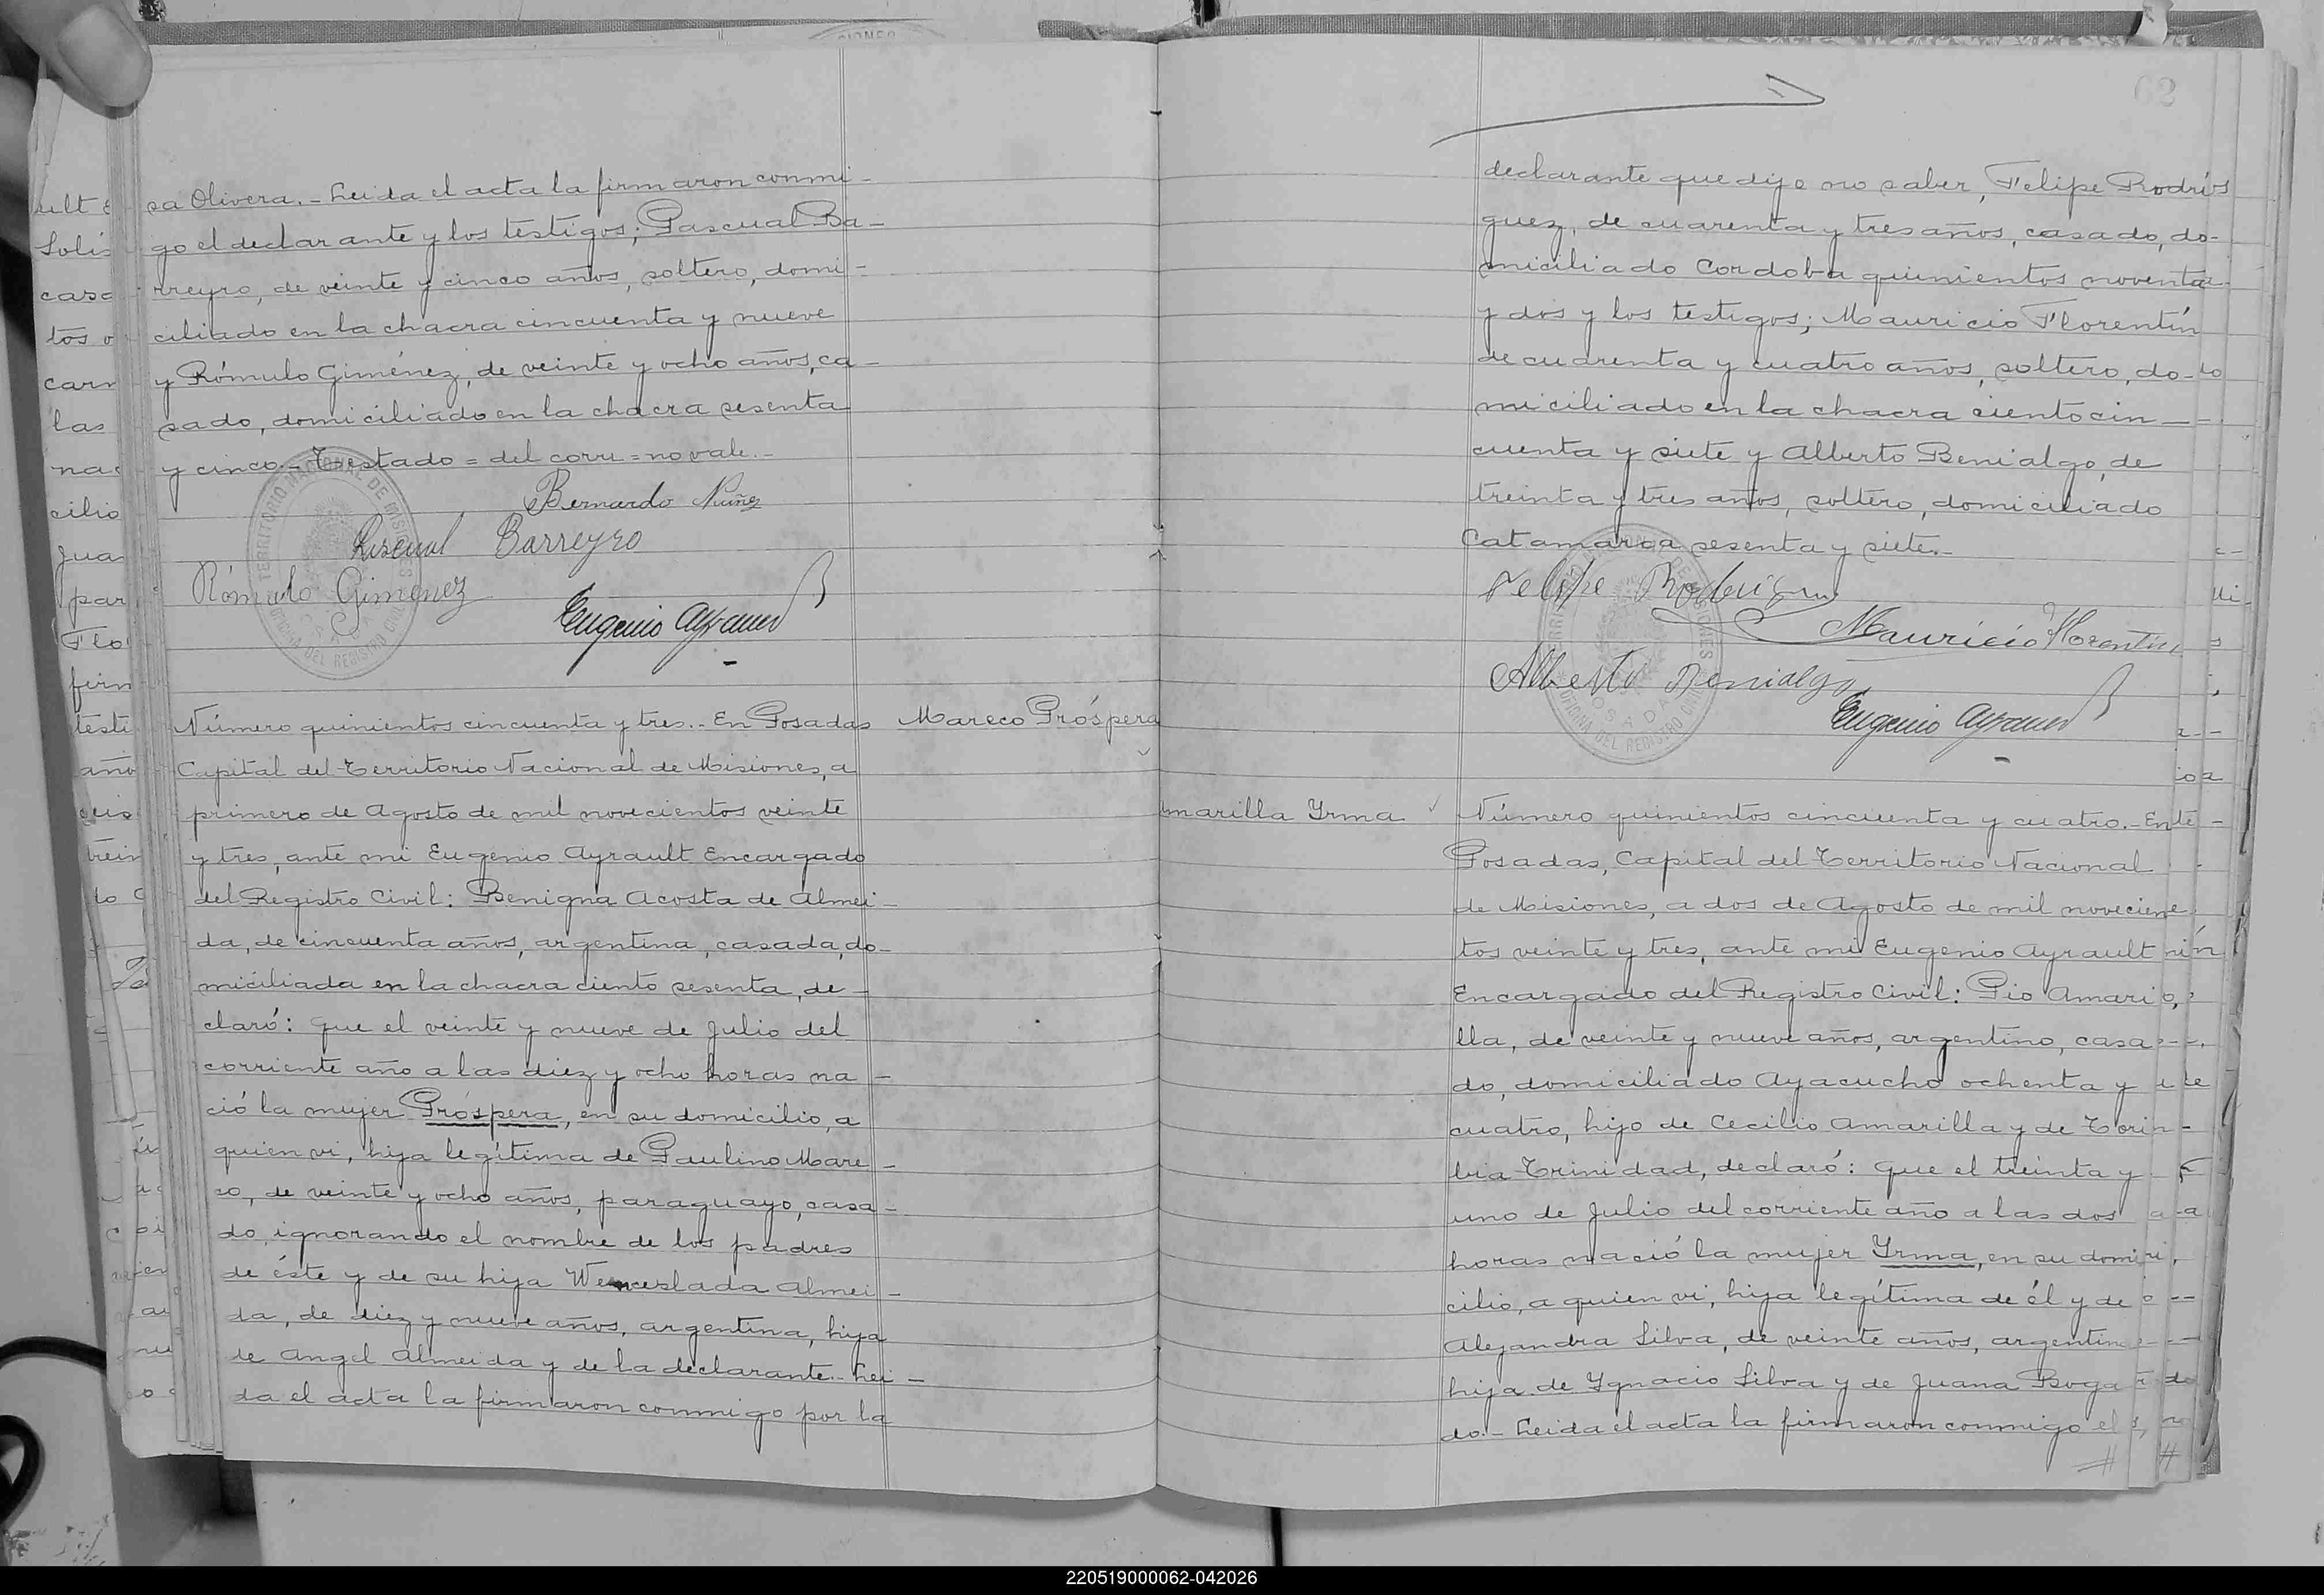 sa Olivera.- Leida el acta la firmaron conmi-
go el declarante y los testigos; Pascual Ba-
rreyro, de veinte y cinco años, soltero, domi-
ciliado en la chacra cincuenta y nueve
y Rómulo Giménez, de veinte y ocho años, ca-
sado, domiciliado en la chacra sesenta
y cinco.- Testado = del corri = no vale.-
Bernardo Nuñez
Pascual Barreyro
Rómulo Gimenez
Eugenio Ayrault
TERRITORIO NACIONAL DE MISIONES
OFICINA DEL REGISTRO CIVIL
Mareco Próspera
Número quinientos cincuenta y tres.- En Posadas
Capital del Territorio Nacional de Misiones, a
primero de Agosto de mil novecientos veinte
y tres, ante mi Eugenio Ayrault Encargado
del Registro Civil: Benigna Acosta de Almei-
da, de cincuenta años, argentina, casada, do-
miciliada en la chacra ciento sesenta, de-
claró: que el veinte y nueve de Julio del
corriente año a las diez y ocho horas na-
ció la mujer Próspera, en su domicilio, a
quien vi, hija legítima de Paulino Mare-
co, de veinte y ocho años, paraguayo, casa-
do, ignorando el nombre de los padres
de éste y de su hija Wenceslada Almei-
da, de diez y nueve años, argentina, hija
de Angel Almeida y de la declarante.- Lei-
da el acta la firmaron conmigo por la
62
declarante que dijo no saber, Felipe Rodrí
guez, de cuarenta y tres años, casado, do-
miciliado Cordoba quinientos noventa
y dos y los testigos; Mauricio Florentín
de cuarenta y cuatro años, soltero, do-
miciliado en la chacra ciento cin-
cuenta y siete y Alberto Benialgo, de
treinta y tres años, soltero, domiciliado
Catamarca sesenta y siete.-
Felipe Rodriguez
Mauricio Florentín
Alberto Benialgo
Eugenio Ayrault
POSADAS
OFICINA DEL REGISTRO CIVIL
marilla Yrma
Número quinientos cincuenta y cuatro.- En
Posadas, Capital del Territorio Nacional
de Misiones, a dos de Agosto de mil novecien
tos veinte y tres, ante mi Eugenio Ayrault
Encargado del Registro Civil: Pio Amari
lla, de veinte y nueve años, argentino, casa
do, domiciliado Ayacucho ochenta y
cuatro, hijo de Cecilio Amarilla y de Tori
bia Trinidad, declaró: que el treinta y
uno de Julio del corriente año a las dos
horas nació la mujer Yrma, en su domi
cilio, a quien vi, hija legítima de él y de
Alejandra Silva, de veinte años, argentina
hija de Ygnacio Silva y de Juana Boga
do.- Leida el acta la firmaron conmigo el
220519000062-042026